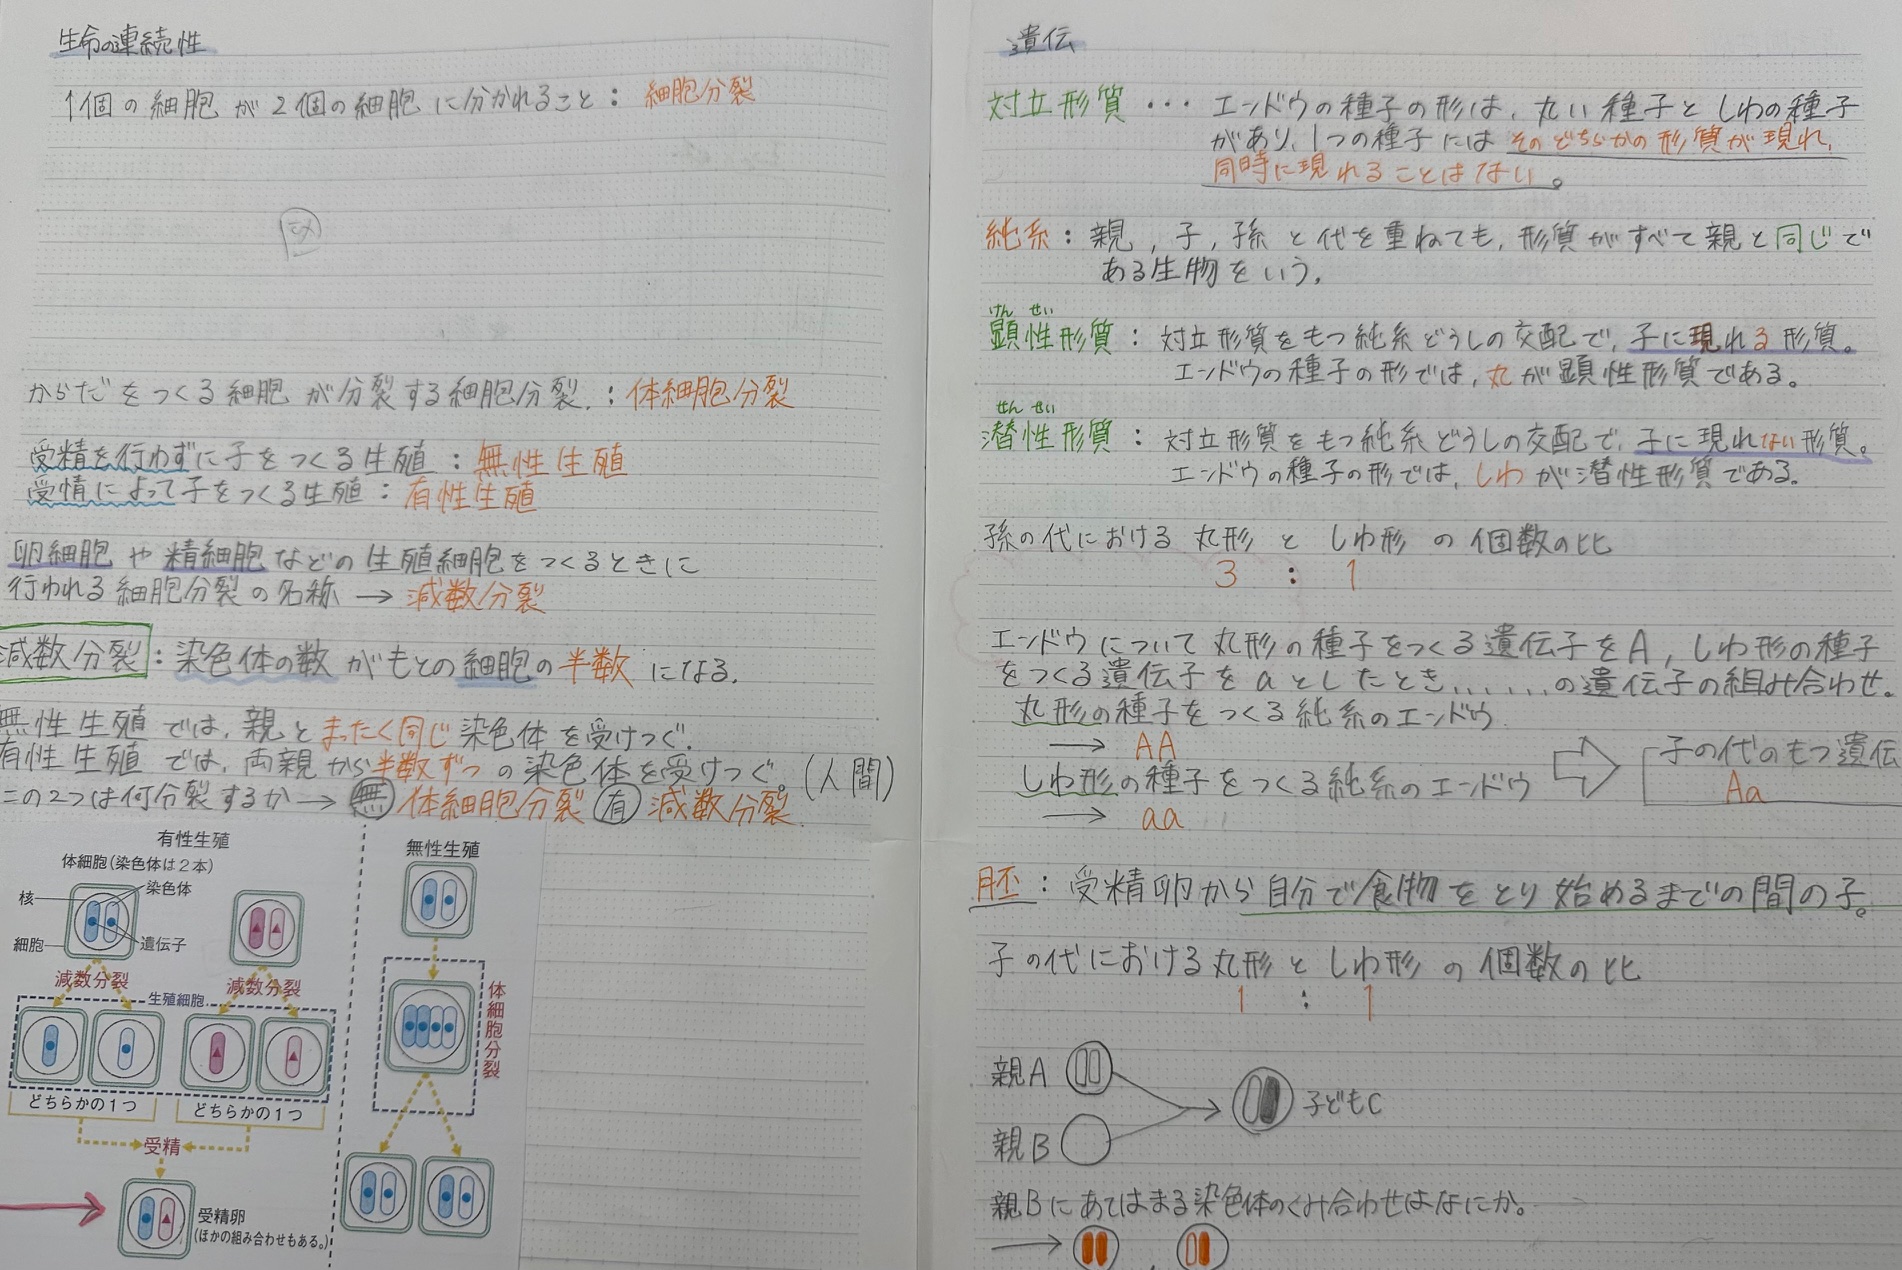 生命の連続性
1個の細胞が2個の細胞に分かれること：細胞分裂
からだをつくる細胞が分裂する細胞分裂.：体細胞分裂
受精を行わずに子をつくる生殖：無性生殖
受情によって子をつくる生殖：有性生殖
卵細胞や精細胞などの生殖細胞をつくるときに
行われる細胞分裂の名称→減数分裂
減数分裂：染色体の数がもとの細胞の半数になる.
無性生殖では、親とまったく同じ染色体を受けつぐ.
有性生殖では、両親から半数ずつの染色体を受けつぐ。(人間)
この2つは何分裂するか→無 体細胞分裂 有 減数分裂.
有性生殖
体細胞(染色体は2本)
核
染色体
細胞
遺伝子
減数分裂
減数分裂
生殖細胞
どちらかの1つ
どちらかの1つ
受精
受精卵
(ほかの組み合わせもある。)
無性生殖
体細胞分裂
遺伝
対立形質・・・エンドウの種子の形は、丸い種子としわの種子
があり、1つの種子にはそのどちらかの形質が現れ、
同時に現れることはない。
純系：親，子，孫と代を重ねても、形質がすべて親と同じで
ある生物をいう.
けん せい
顕性形質：対立形質をもつ純系どうしの交配で、子に現れる形質。
エンドウの種子の形では、丸が顕性形質である。
せん せい
潜性形質：対立形質をもつ純系どうしの交配で、子に現れない形質。
エンドウの種子の形では、しわが潜性形質である。
孫の代における丸形としわ形の個数の比
3：1
エンドウについて丸形の種子をつくる遺伝子をA，しわ形の種子
をつくる遺伝子をaとしたとき......の遺伝子の組み合わせ。
丸形の種子をつくる純系のエンドウ
→AA
しわ形の種子をつくる純系のエンドウ
→aa
子の代のもつ遺伝
Aa
胚：受精卵から自分で食物をとり始めるまでの間の子。
子の代における丸形としわ形の個数の比
1：1
親A
子どもC
親B
親Bにあてはまる染色体のくみ合わせはなにか。
→